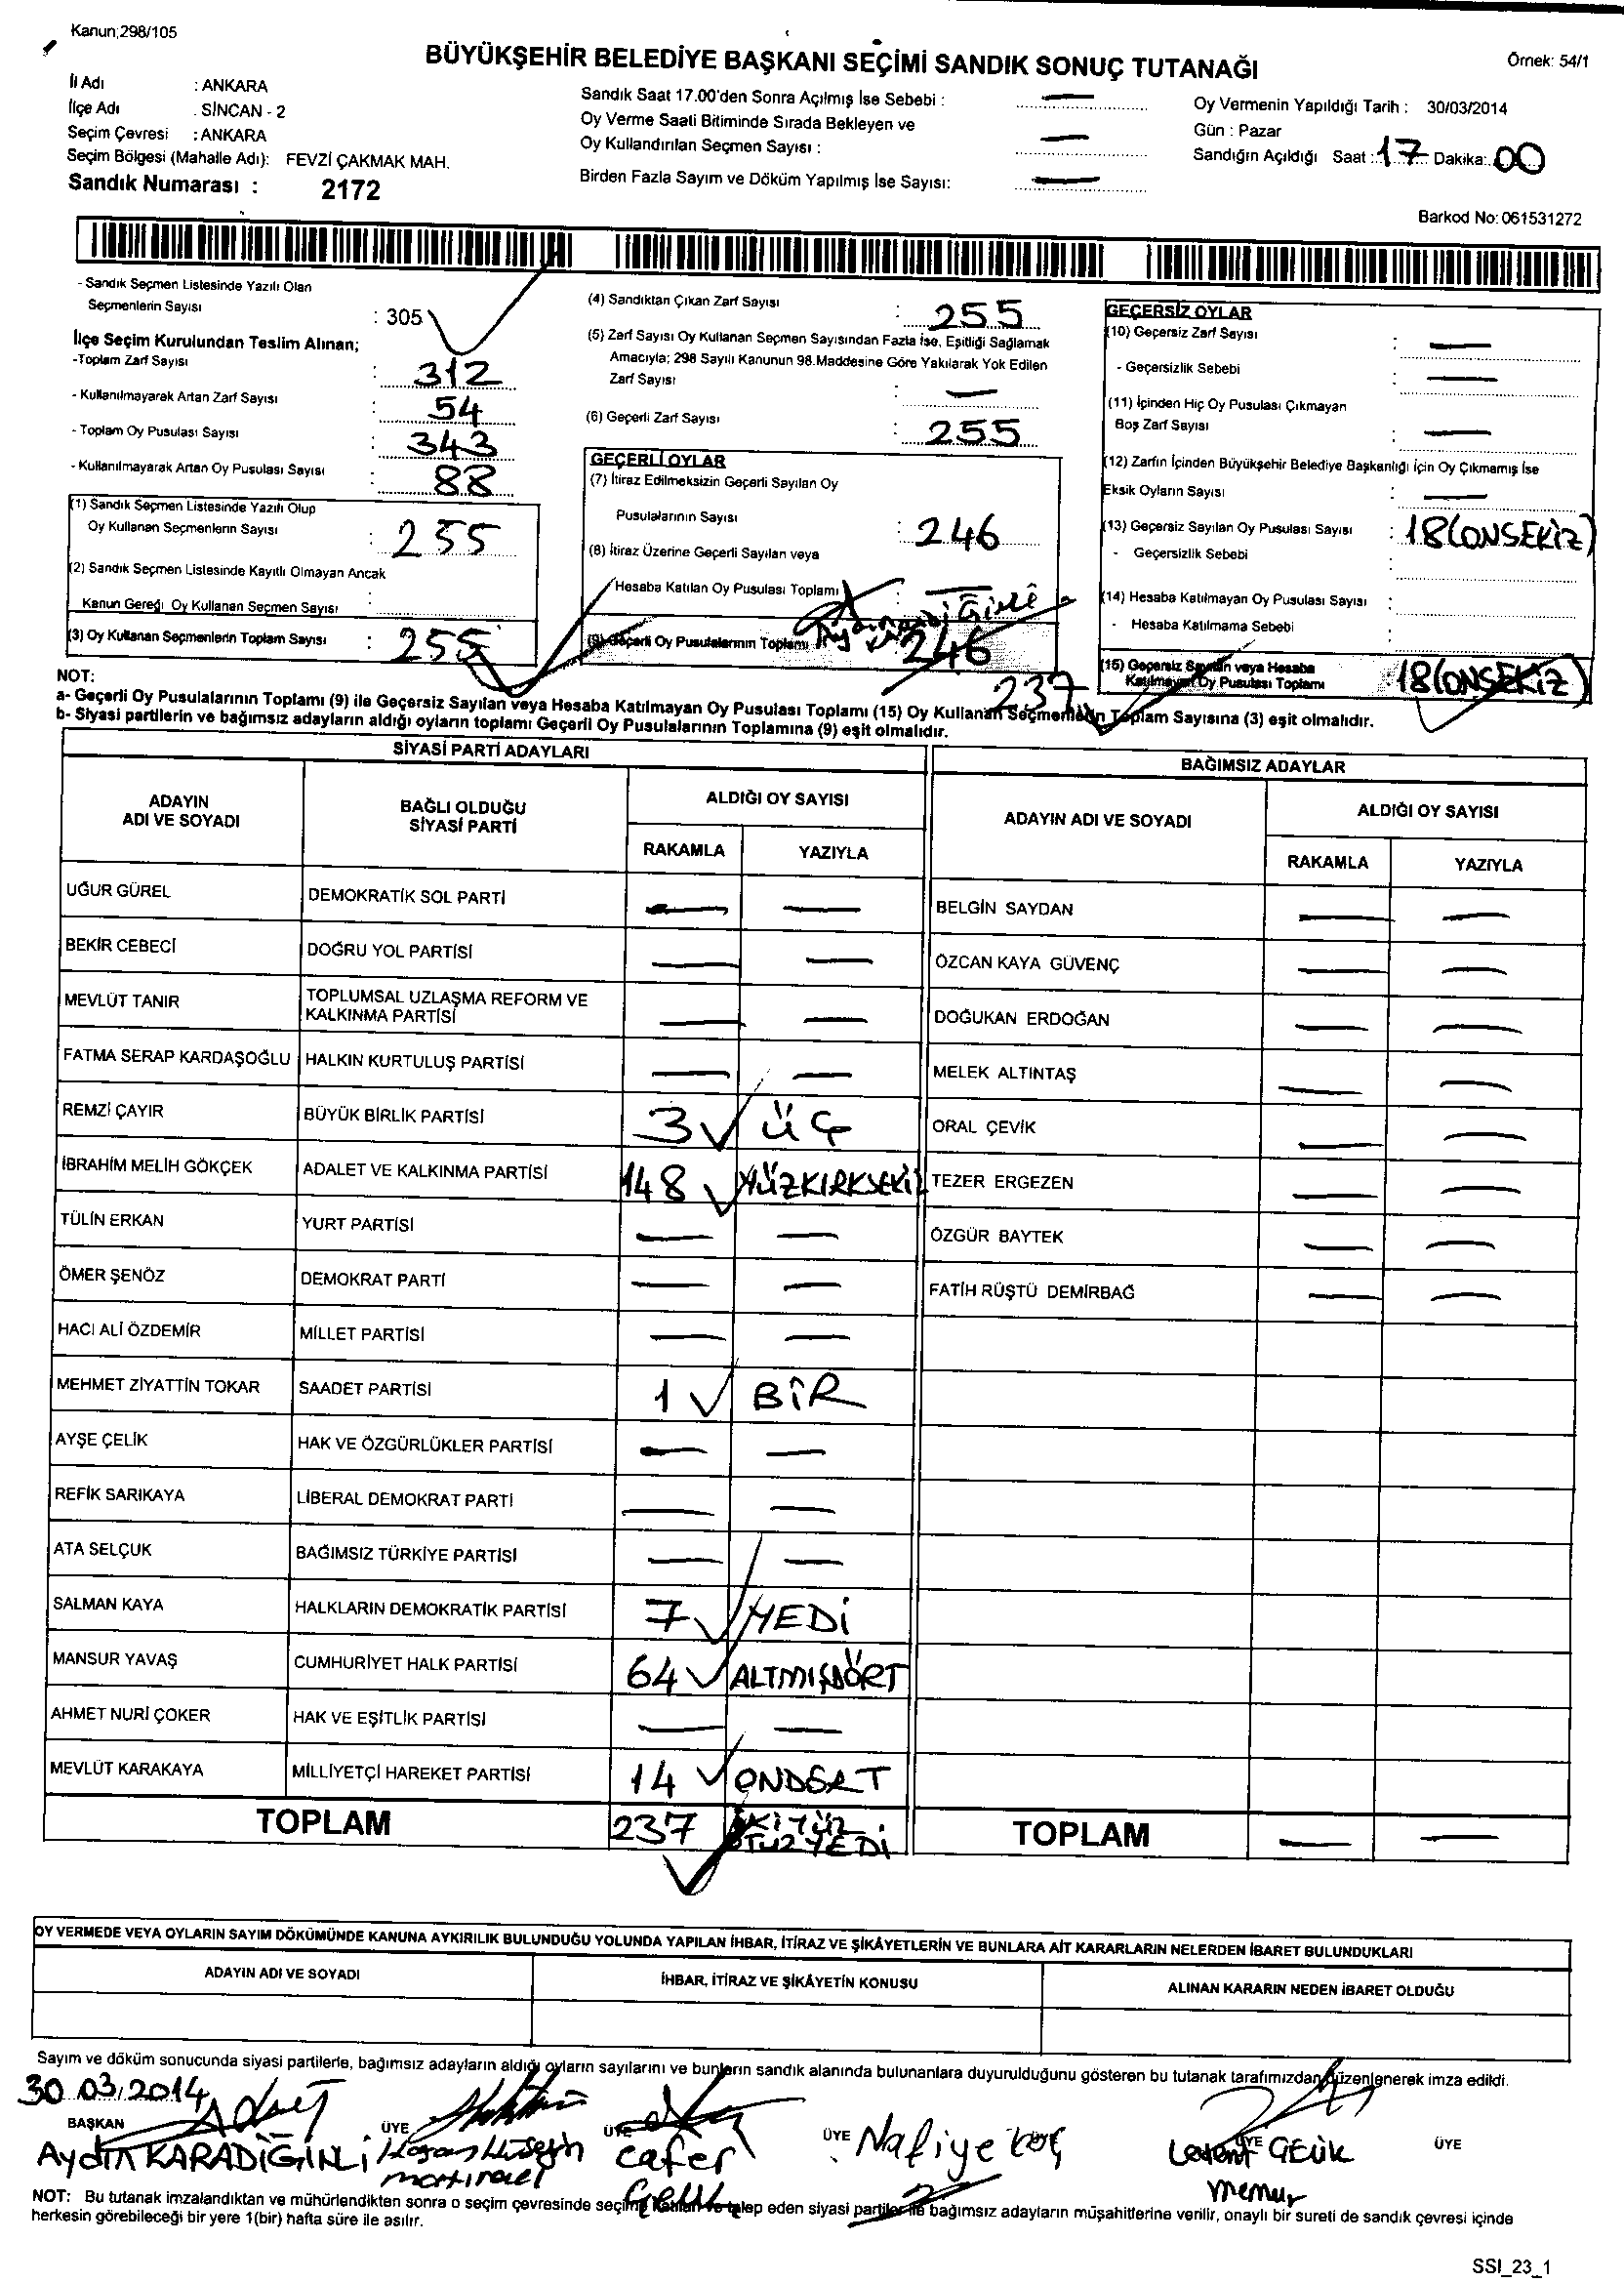 Kanun;298/105
BÜYÜKŞEHİR BELEDİYE BAŞKANI SEÇİMİ SANDIK SONUÇ TUTANAĞI
Örnek: 54/1
İl Adı : ANKARA
İlçe Adı : SİNCAN - 2
Seçim Çevresi : ANKARA
Seçim Bölgesi (Mahalle Adı): FEVZİ ÇAKMAK MAH.
Sandık Numarası : 2172
Sandık Saat 17.00'den Sonra Açılmış İse Sebebi : —
Oy Verme Saati Bitiminde Sırada Bekleyen ve
Oy Kullandırılan Seçmen Sayısı : —
Birden Fazla Sayım ve Döküm Yapılmış İse Sayısı: —
Oy Vermenin Yapıldığı Tarih : 30/03/2014
Gün : Pazar
Sandığın Açıldığı Saat : 17 Dakika: 00
Barkod No: 061531272
- Sandık Seçmen Listesinde Yazılı Olan
Seçmenlerin Sayısı : 305
İlçe Seçim Kurulundan Teslim Alınan;
-Toplam Zarf Sayısı : 312
- Kullanılmayarak Artan Zarf Sayısı : 54
- Toplam Oy Pusulası Sayısı : 343
- Kullanılmayarak Artan Oy Pusulası Sayısı : 88
(1) Sandık Seçmen Listesinde Yazılı Olup
Oy Kullanan Seçmenlerin Sayısı : 255
(2) Sandık Seçmen Listesinde Kayıtlı Olmayan Ancak
Kanun Gereği Oy Kullanan Seçmen Sayısı :
(3) Oy Kullanan Seçmenlerin Toplam Sayısı : 255
(4) Sandıktan Çıkan Zarf Sayısı : 255
(5) Zarf Sayısı Oy Kullanan Seçmen Sayısından Fazla İse, Eşitliği Sağlamak
Amacıyla; 298 Sayılı Kanunun 98.Maddesine Göre Yakılarak Yok Edilen
Zarf Sayısı : —
(6) Geçerli Zarf Sayısı : 255
GEÇERLİ OYLAR
(7) İtiraz Edilmeksizin Geçerli Sayılan Oy
Pusulalarının Sayısı : 246
(8) İtiraz Üzerine Geçerli Sayılan veya
Hesaba Katılan Oy Pusulası Toplamı : —
(9) Geçerli Oy Pusulalarının Toplamı 246
237
GEÇERSİZ OYLAR
(10) Geçersiz Zarf Sayısı : —
- Geçersizlik Sebebi : —
(11) İçinden Hiç Oy Pusulası Çıkmayan
Boş Zarf Sayısı : —
(12) Zarfın İçinden Büyükşehir Belediye Başkanlığı İçin Oy Çıkmamış İse
Eksik Oyların Sayısı : —
(13) Geçersiz Sayılan Oy Pusulası Sayısı : 18(ONSEKİZ)
- Geçersizlik Sebebi :
(14) Hesaba Katılmayan Oy Pusulası Sayısı :
- Hesaba Katılmama Sebebi :
(15) Geçersiz Sayılan veya Hesaba
Katılmayan Oy Pusulası Toplamı : 18(ONSEKİZ)
NOT:
a- Geçerli Oy Pusulalarının Toplamı (9) ile Geçersiz Sayılan veya Hesaba Katılmayan Oy Pusulası Toplamı (15) Oy Kullanan Seçmenlerin Toplam Sayısına (3) eşit olmalıdır.
b- Siyasi partilerin ve bağımsız adayların aldığı oyların toplamı Geçerli Oy Pusulalarının Toplamına (9) eşit olmalıdır.
SİYASİ PARTİ ADAYLARI
ADAYIN ADI VE SOYADI
BAĞLI OLDUĞU SİYASİ PARTİ
ALDIĞI OY SAYISI
RAKAMLA YAZIYLA
UĞUR GÜREL DEMOKRATİK SOL PARTİ — —
BEKİR CEBECİ DOĞRU YOL PARTİSİ — —
MEVLÜT TANIR TOPLUMSAL UZLAŞMA REFORM VE KALKINMA PARTİSİ — —
FATMA SERAP KARDAŞOĞLU HALKIN KURTULUŞ PARTİSİ — —
REMZİ ÇAYIR BÜYÜK BİRLİK PARTİSİ 3 ÜÇ
İBRAHİM MELİH GÖKÇEK ADALET VE KALKINMA PARTİSİ 148 YÜZKIRKSEKİZ
TÜLİN ERKAN YURT PARTİSİ — —
ÖMER ŞENÖZ DEMOKRAT PARTİ — —
HACI ALİ ÖZDEMİR MİLLET PARTİSİ — —
MEHMET ZİYATTİN TOKAR SAADET PARTİSİ 1 BİR
AYŞE ÇELİK HAK VE ÖZGÜRLÜKLER PARTİSİ — —
REFİK SARIKAYA LİBERAL DEMOKRAT PARTİ — —
ATA SELÇUK BAĞIMSIZ TÜRKİYE PARTİSİ — —
SALMAN KAYA HALKLARIN DEMOKRATİK PARTİSİ 7 YEDİ
MANSUR YAVAŞ CUMHURİYET HALK PARTİSİ 64 ALTMIŞDÖRT
AHMET NURİ ÇOKER HAK VE EŞİTLİK PARTİSİ — —
MEVLÜT KARAKAYA MİLLİYETÇİ HAREKET PARTİSİ 14 ONDÖRT
TOPLAM 237 İKİYÜZ OTUZYEDİ
BAĞIMSIZ ADAYLAR
ADAYIN ADI VE SOYADI
ALDIĞI OY SAYISI
RAKAMLA YAZIYLA
BELGİN SAYDAN — —
ÖZCAN KAYA GÜVENÇ — —
DOĞUKAN ERDOĞAN — —
MELEK ALTINTAŞ — —
ORAL ÇEVİK — —
TEZER ERGEZEN — —
ÖZGÜR BAYTEK — —
FATİH RÜŞTÜ DEMİRBAĞ — —
TOPLAM — —
OY VERMEDE VEYA OYLARIN SAYIM DÖKÜMÜNDE KANUNA AYKIRILIK BULUNDUĞU YOLUNDA YAPILAN İHBAR, İTİRAZ VE ŞİKÂYETLERİN VE BUNLARA AİT KARARLARIN NELERDEN İBARET BULUNDUKLARI
ADAYIN ADI VE SOYADI
İHBAR, İTİRAZ VE ŞİKÂYETİN KONUSU
ALINAN KARARIN NEDEN İBARET OLDUĞU
Sayım ve döküm sonucunda siyasi partilerle, bağımsız adayların aldığı oyların sayılarını ve bunların sandık alanında bulunanlara duyurulduğunu gösteren bu tutanak tarafımızdan düzenlenerek imza edildi.
30.03.2014
BAŞKAN ÜYE ÜYE ÜYE ÜYE ÜYE
Aydın KARADİĞİNLİ
Hasan Hüseyin
Cafer
Nafiye Koç
Levent ÇELİK
memur
NOT: Bu tutanak imzalandıktan ve mühürlendikten sonra o seçim çevresinde seçime katılan ve talep eden siyasi partiler ile bağımsız adayların müşahitlerine verilir, onaylı bir sureti de sandık çevresi içinde
herkesin görebileceği bir yere 1(bir) hafta süre ile asılır.
SSI_23_1